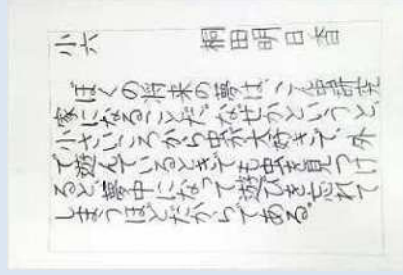 小六　桐田明日香
ぼくの将来の夢は、こん虫研究
家になることだ。なぜかというと、
小さいころから虫が大好きで、外
で遊んでいるときでも虫を見つけ
ると、夢中になって遊びを忘れて
しまうほどだからである。